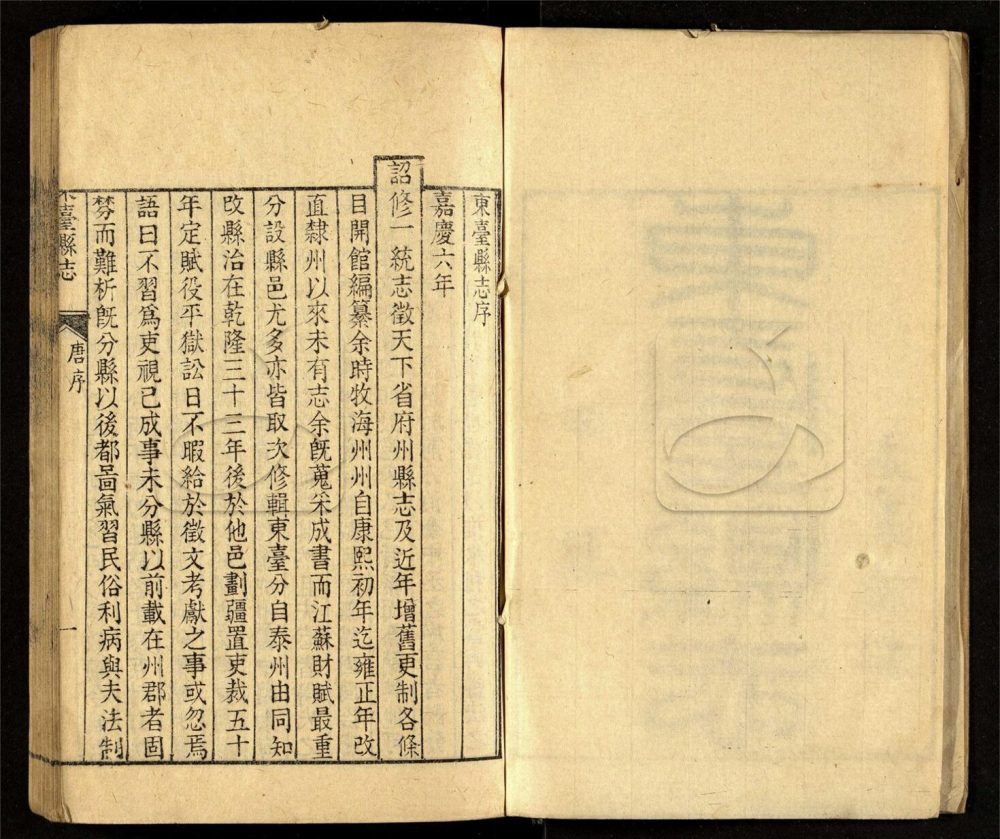 東臺縣志序
嘉慶六年
詔修一統志徵天下省府州縣志及近年增舊更制各條
目開館編纂余時牧海州州自康熙初年迄雍正年改
直隸州以來未有志余旣蒐采成書而江蘇財賦最重
分設縣邑尤多亦皆取次修輯東臺分自泰州由同知
改縣治在乾隆三十三年後於他邑劃疆置吏裁五十
年定賦役平獄訟日不暇給於徵文考獻之事或忽焉
語曰不習爲吏視已成事未分縣以前載在州郡者固
棼而難析旣分縣以後都啚氣習民俗利病與夫法制
東臺縣志
唐序
一